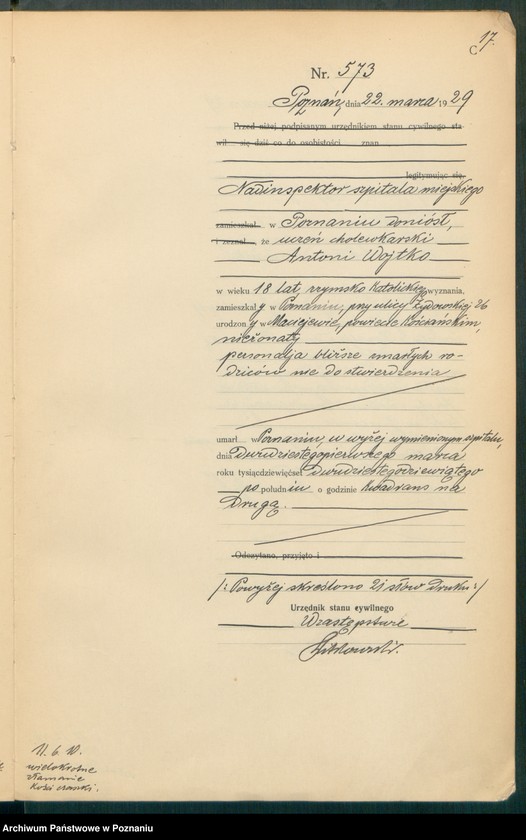 17.
C
Nr. 573
Poznań, dnia 22. marca 1929
Przed niżej podpisanym urzędnikiem stanu cywilnego sta-
wił się dziś co do osobistości znan
legitymując się,
Nadinspektor szpitala miejskiego
zamieszkał w Poznaniu doniósł,
i zeznał, że uczeń cholewkarski
Antoni Wojtko
w wieku 18 lat, rzymsko katolickiego wyznania,
zamieszkały w Poznaniu, przy ulicy Żydowskiej 26
urodzony w Maciejewie, powiecie Kościańskim,
nieżonaty
personalja bliższe zmarłych ro-
dziców nie do stwierdzenia
umarł w Poznaniu, w wyżej wymienionym szpitalu,
dnia dwudziestegopierwszego marca
roku tysiącdziewięćset dwudziestegodziewiątego
po południu o godzinie kwadrans na
drugą.
Odczytano, przyjęto i
/: Powyżej skreślono 21 słów druku :/
Urzędnik stanu cywilnego
W zastępstwie
11. 6. 10.
wielokrotne
złamanie
kości czaszki.
Archiwum Państwowe w Poznaniu